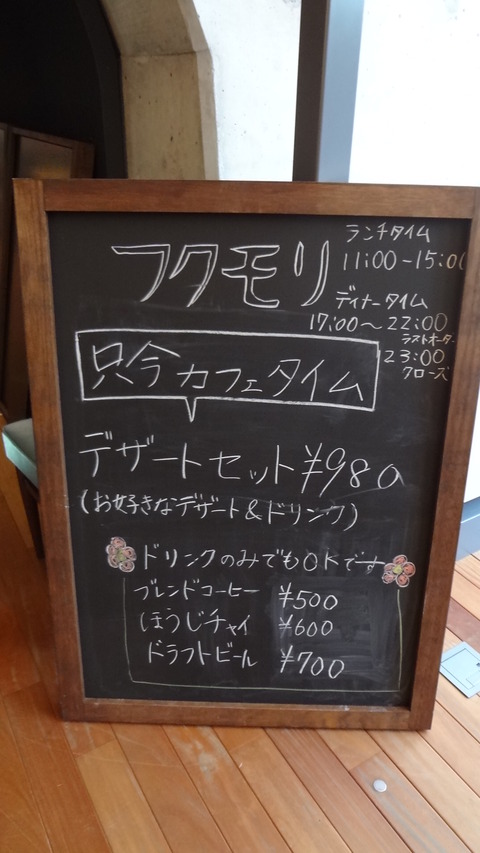 フクモリ
ランチタイム
11:00-15:00
ディナータイム
17:00～22:00
ラストオーダー
23:00
クローズ
只今カフェタイム
デザートセット ¥980
(お好きなデザート&ドリンク)
ドリンクのみでもOKです
ブレンドコーヒー ¥500
ほうじチャイ ¥600
ドラフトビール ¥700